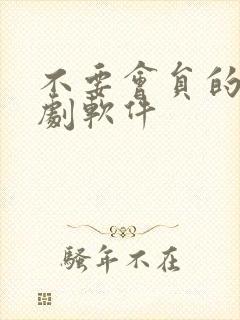 不要會員的
劇軟件
騷年不在